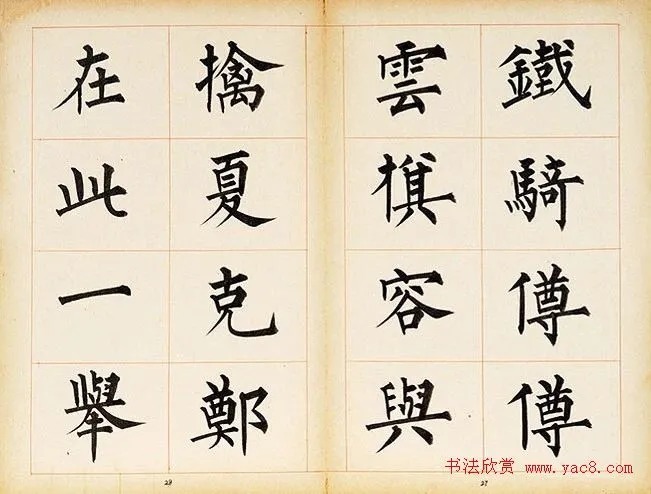 鐵騎僔僔
雲旗容與
27
擒夏克鄭
在此一舉
28
书法欣赏 www.yac8.com